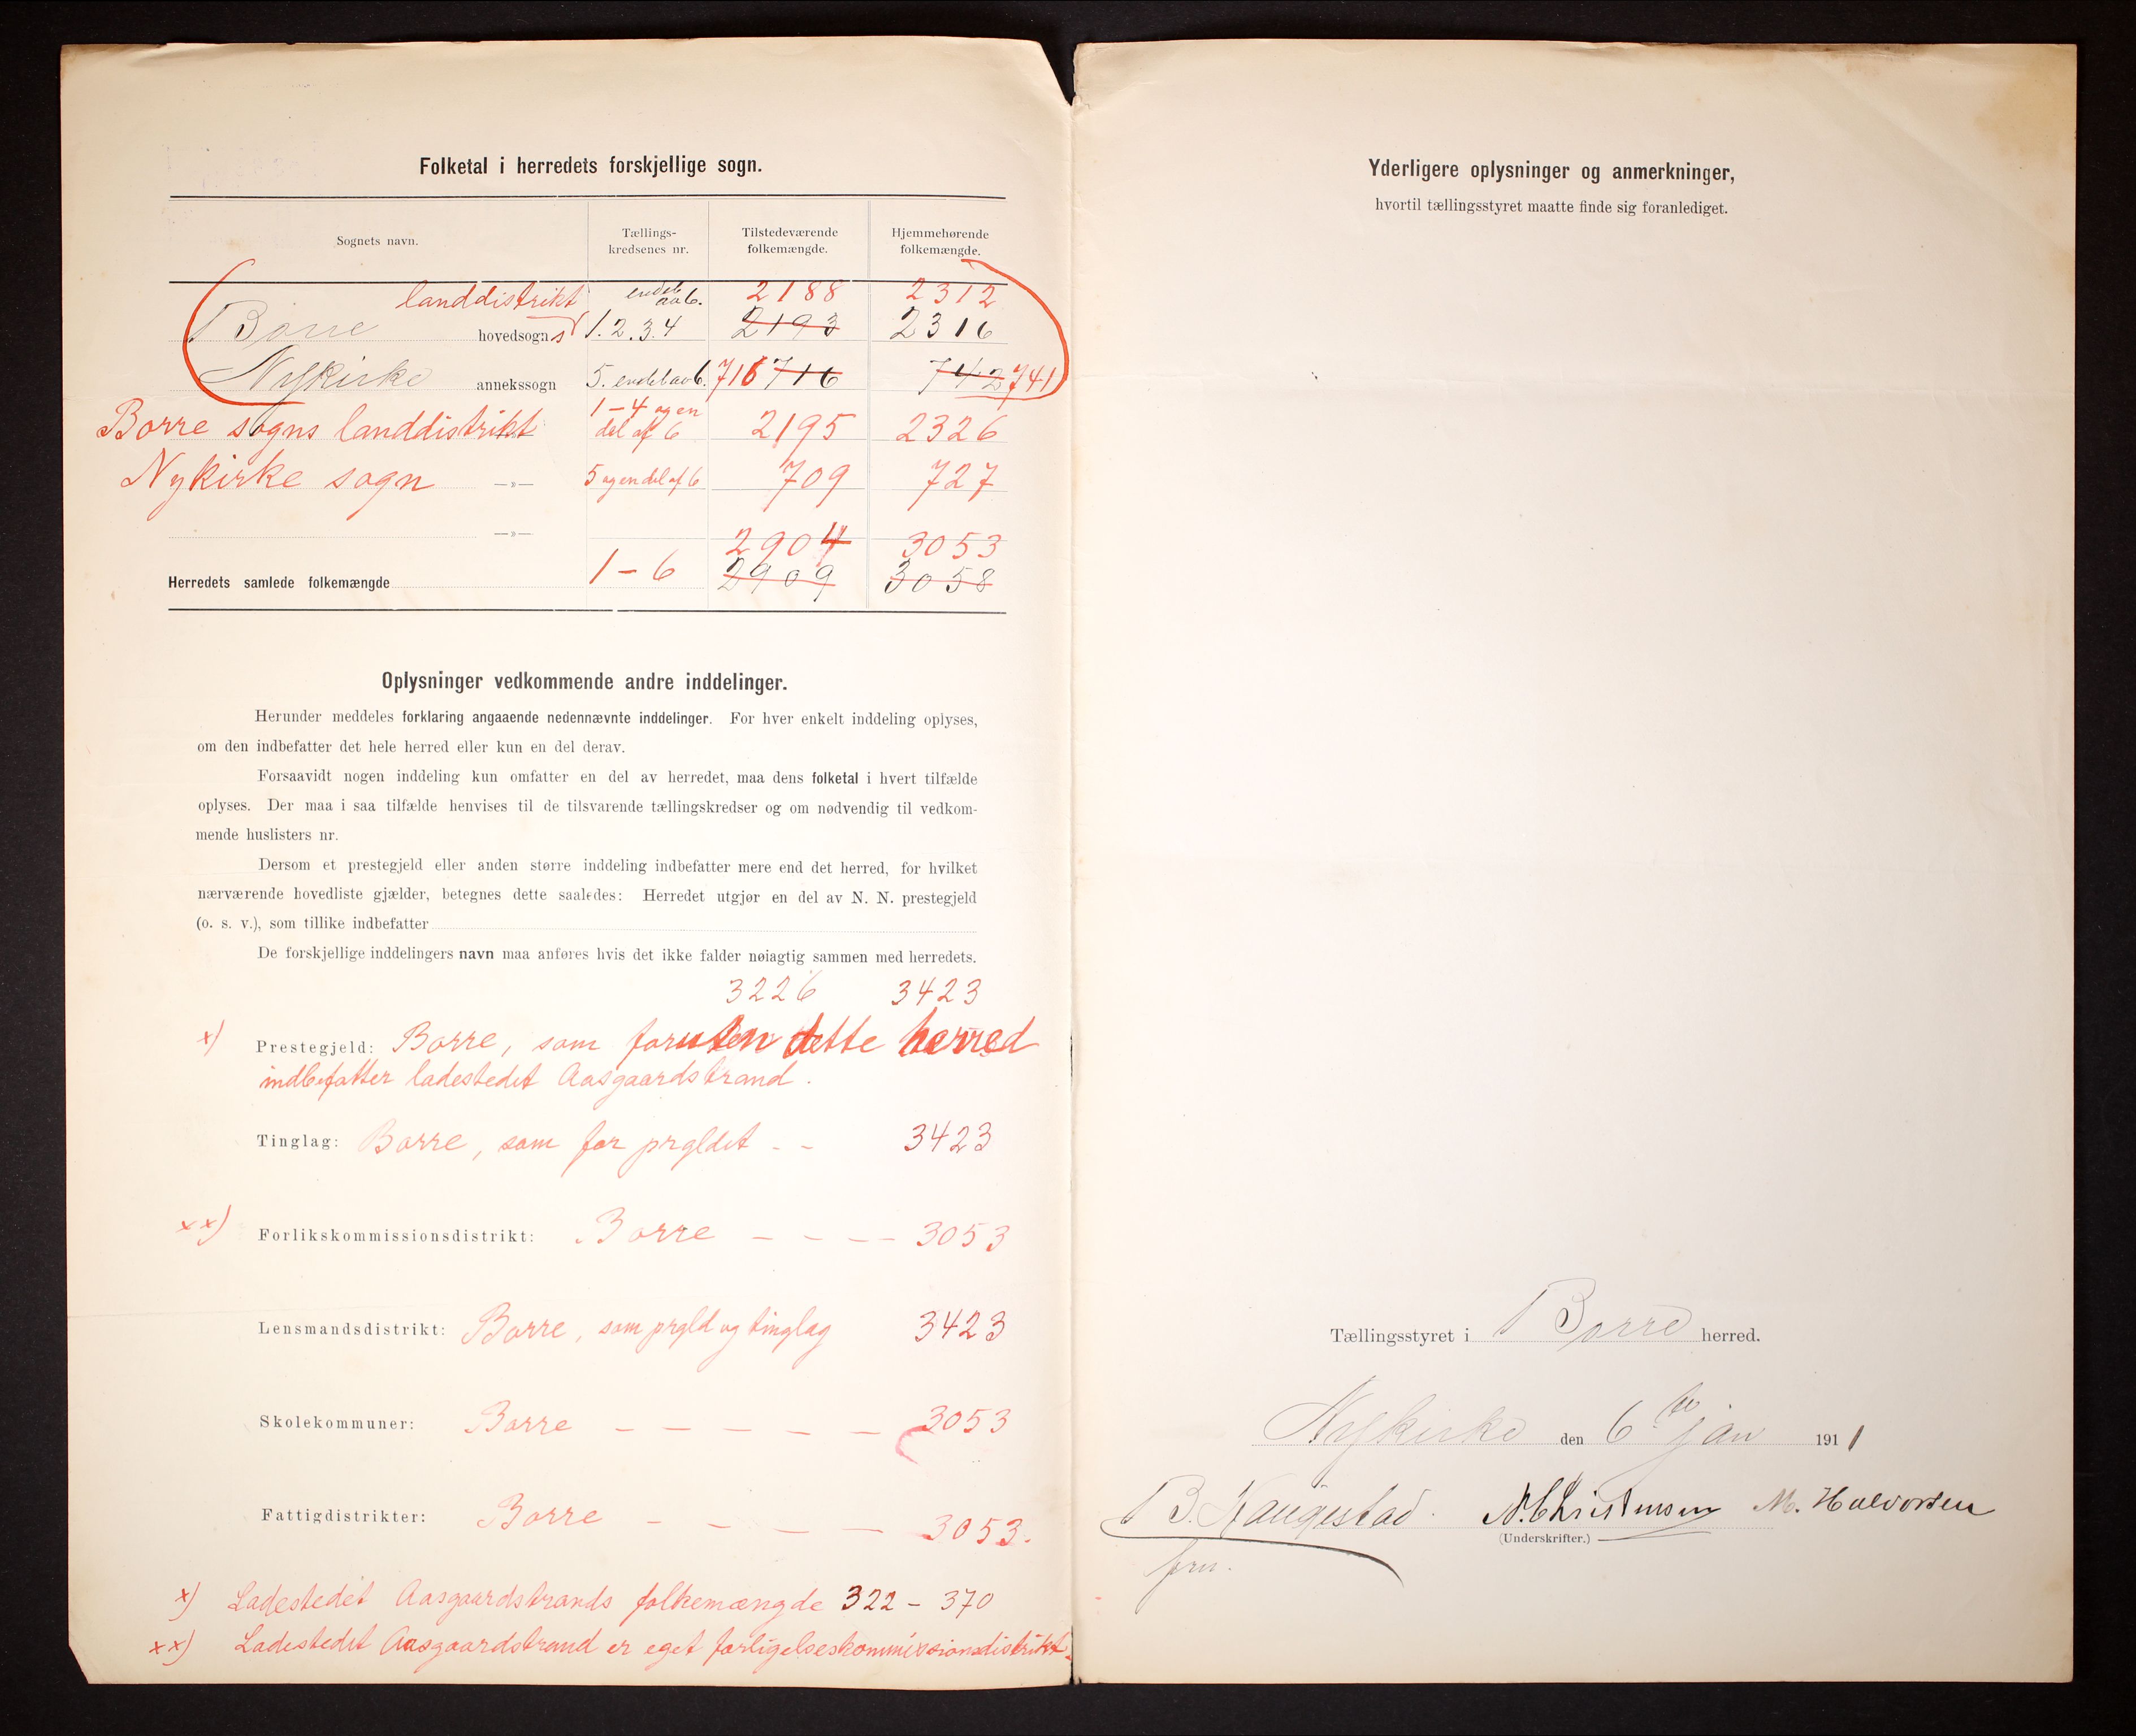 Folketal i herredets forskjellige sogn.
Sognets navn.
Tællings-
kredsenes nr.
Tilstedeværende
folkemængde.
Hjemmehørende
folkemængde.
landdistrikt endel av 6. 2188 2312
Borre hovedsogns 1. 2. 3. 4 2193 2316
Nykirke annekssogn 5. endel av 6. 716 716 742 741
Borre sogns landdistrikt 1-4 og en del af 6 2195 2326
Nykirke sogn —»— 5 og en del af 6 709 727
—»— 2904 3053
Herredets samlede folkemængde 1-6 2909 3058
Oplysninger vedkommende andre inddelinger.
Herunder meddeles forklaring angaaende nedennævnte inddelinger. For hver enkelt inddeling oplyses,
om den indbefatter det hele herred eller kun en del derav.
Forsaavidt nogen inddeling kun omfatter en del av herredet, maa dens folketal i hvert tilfælde
oplyses. Der maa i saa tilfælde henvises til de tilsvarende tællingskredser og om nødvendig til vedkom-
mende huslisters nr.
Dersom et prestegjeld eller anden større inddeling indbefatter mere end det herred, for hvilket
nærværende hovedliste gjælder, betegnes dette saaledes: Herredet utgjør en del av N. N. prestegjeld
(o. s. v.), som tillike indbefatter
De forskjellige inddelingers navn maa anføres hvis det ikke falder nøiagtig sammen med herredets.
3226 3423
x) Prestegjeld: Borre, som foruten dette herred
indbefatter ladestedet Aasgaardstrand.
Tinglag: Borre, som for prgldet - - 3423
xx) Forlikskommissionsdistrikt: Borre - - - - 3053
Lensmandsdistrikt: Borre, som prgld og tinglag 3423
Skolekommuner: Borre - - - - - 3053
Fattigdistrikter: Borre - - - - 3053.
x) Ladestedet Aasgaardstrands folkemængde 322 - 370
xx) Ladestedet Aasgaardstrand er eget forligelseskommissionsdistrikt.
Yderligere oplysninger og anmerkninger,
hvortil tællingsstyret maatte finde sig foranlediget.
Tællingsstyret i Borre herred.
Nykirke den 6te jan 1911
B. Haugestad. N. Christensen M. Halvorsen
(Underskrifter.)